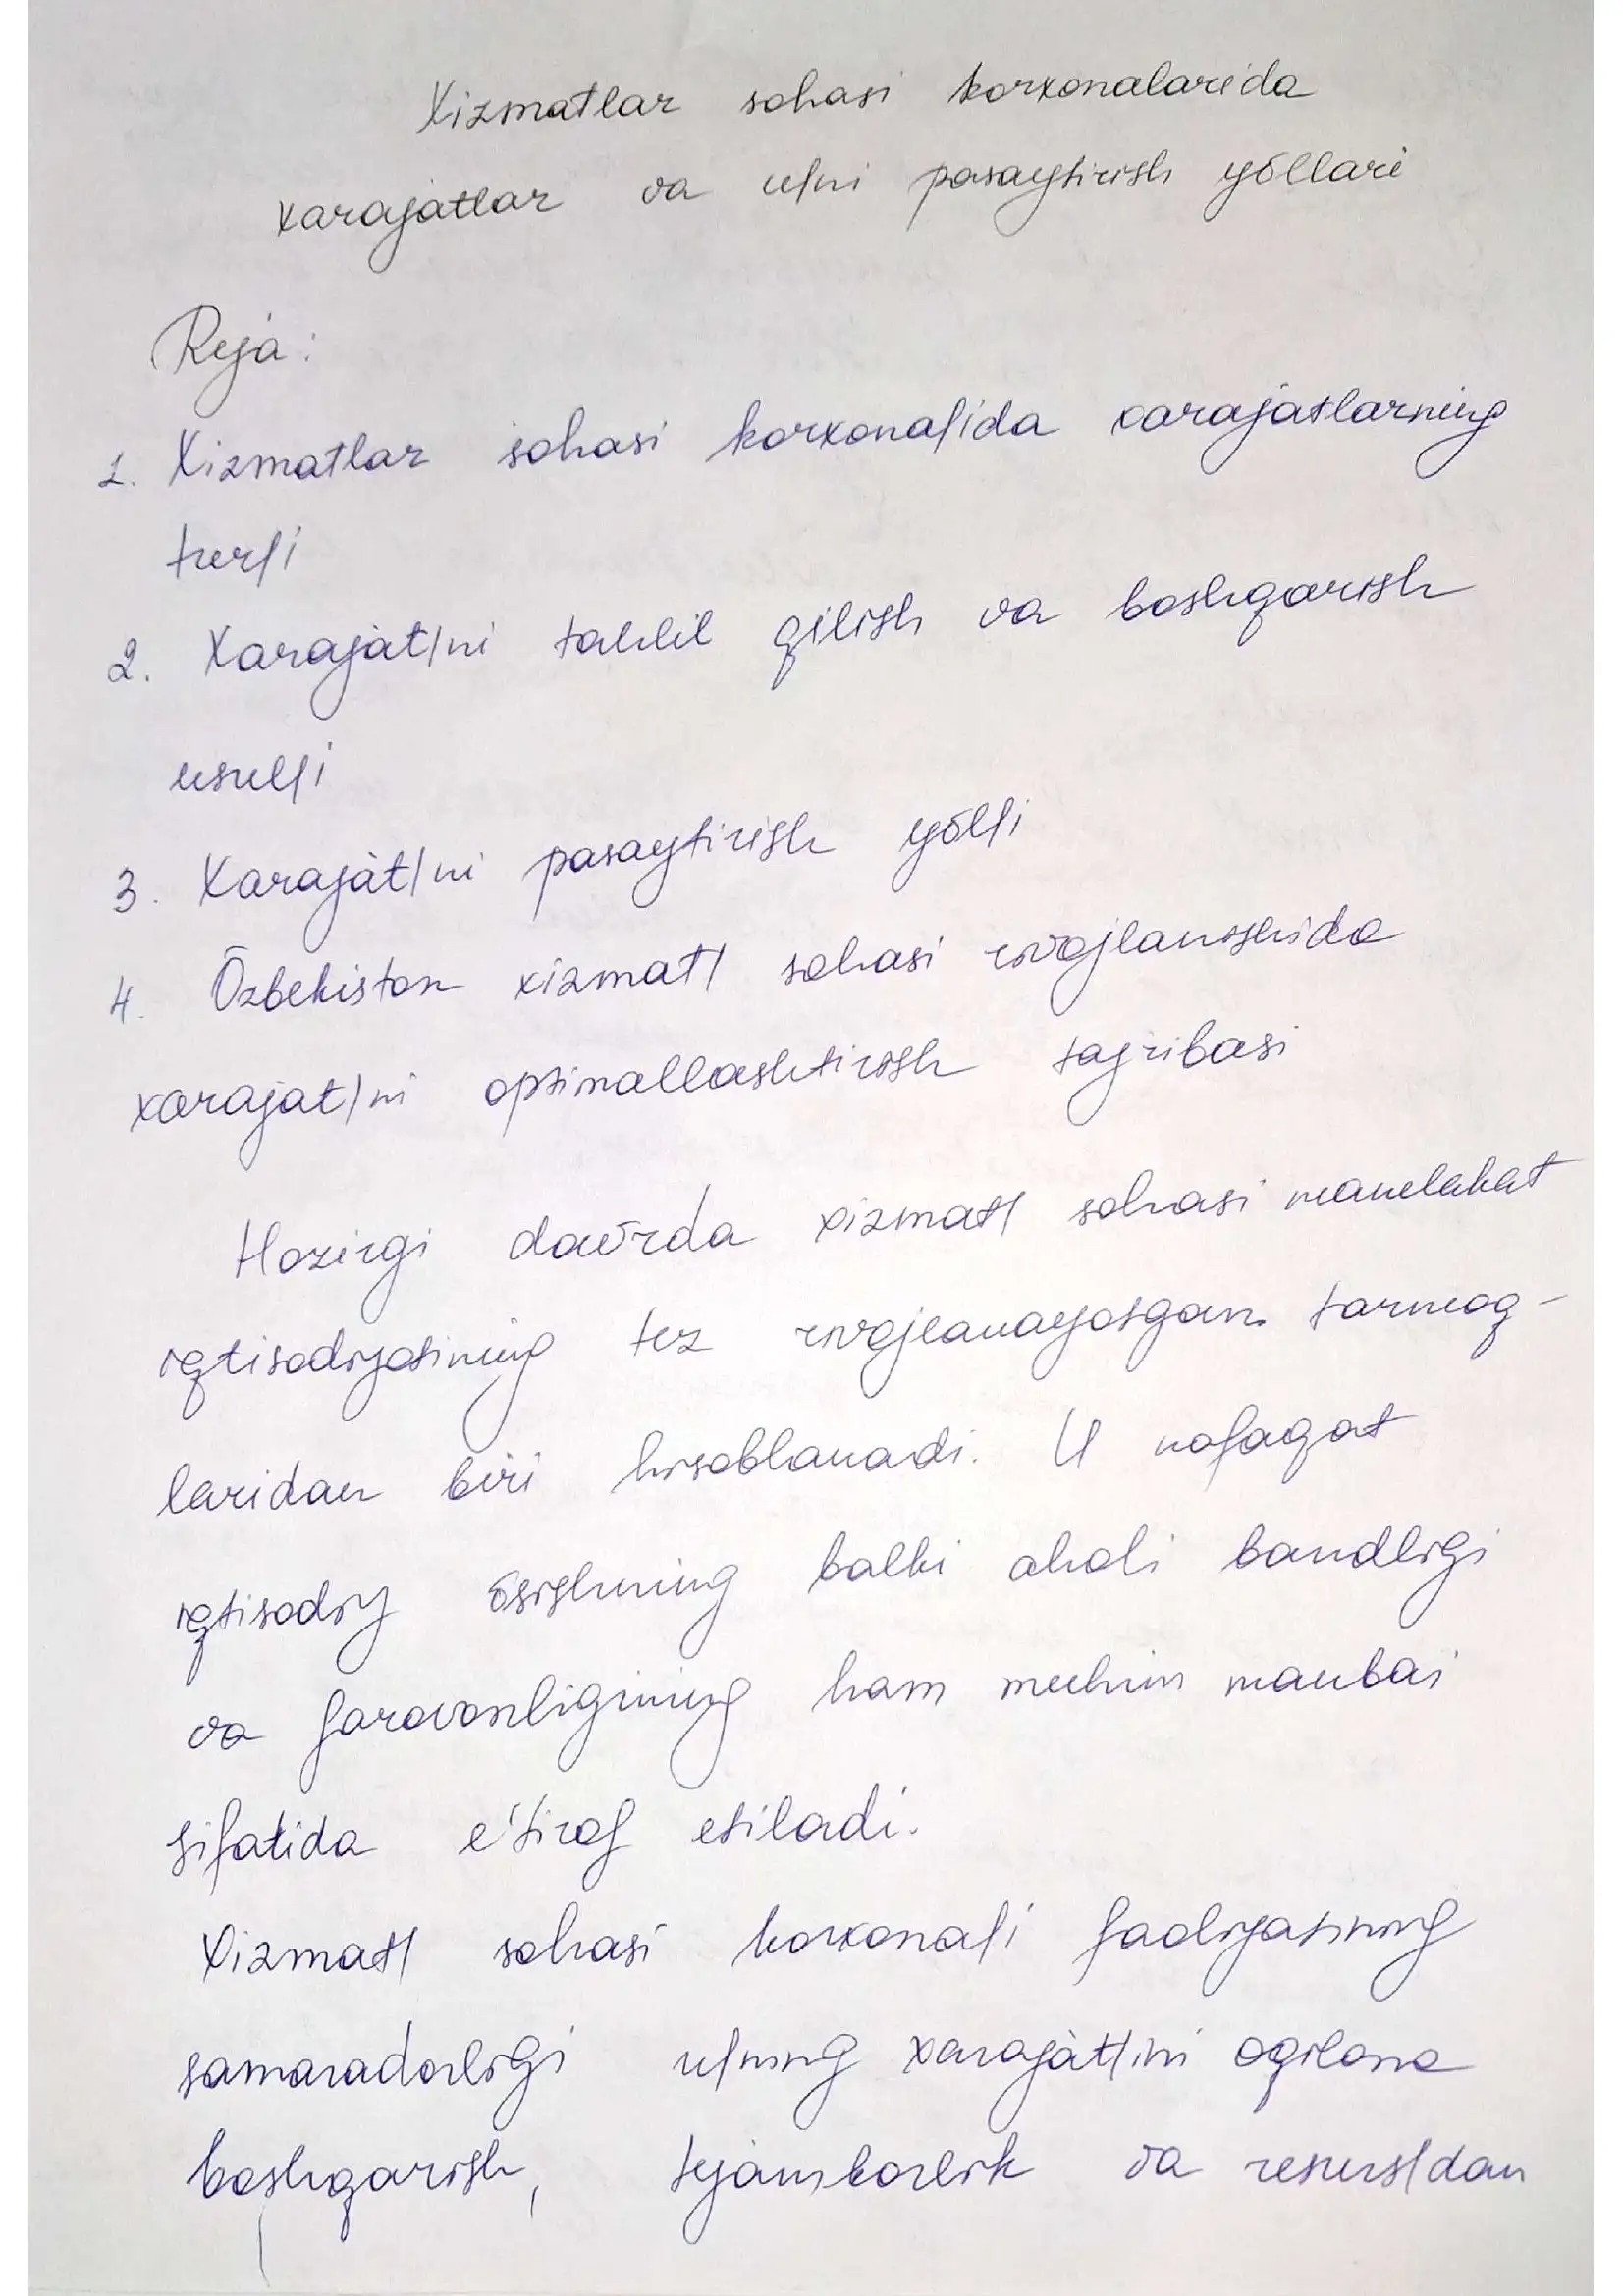 Xizmatlar sohasi korxonalarida
xarajatlar va u/ni pasaytirish yōllari
Reja:
1. Xizmatlar sohasi korxona/ida xarajatlarning
tur/i
2. Xarajat/ni tahlil qilish va boshqarish
usul/i
3. Xarajat/ni pasaytirish yōl/i
4. Ōzbekiston xizmat/ sohasi rivojlanishida
xarajat/ni optimallashtirish tajribasi
Hozirgi davrda xizmat/ sohasi mamlakat
iqtisodiyotining tez rivojlanayotgan tarmoq-
laridan biri hisoblanadi. U nafaqat
iqtisodiy ōsishning balki aholi bandligi
va farovonligining ham muhim manbai
sifatida e'tirof etiladi.
Xizmat/ sohasi korxona/i faoliyatining
samaradorligi u/ning xarajat/ini oqilona
boshqarish, tejamkorlik va resurs/dan